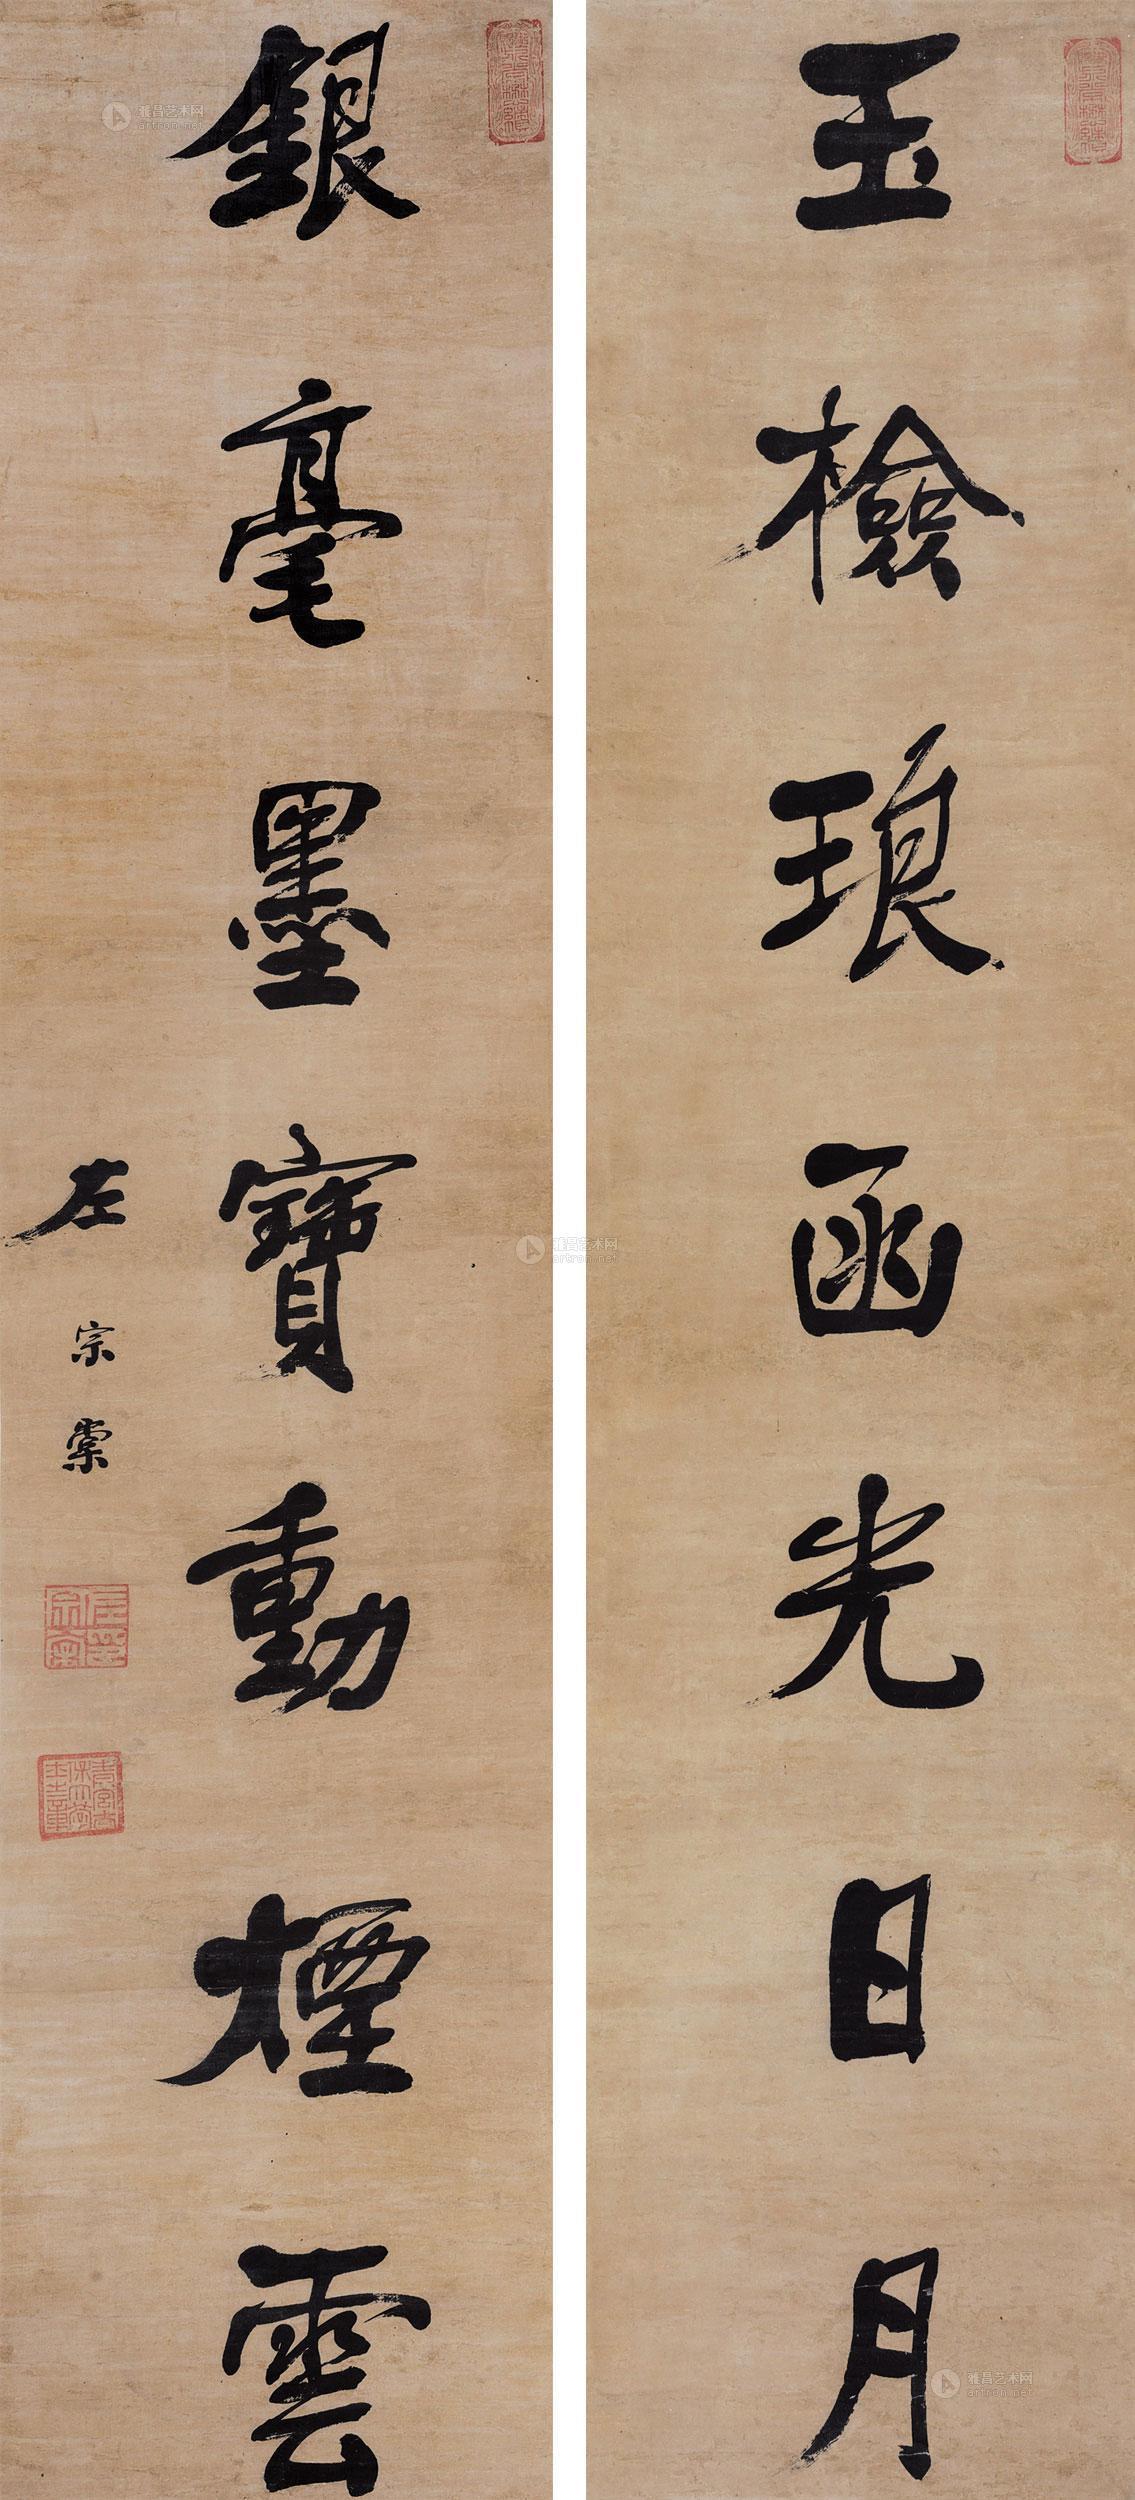 玉檢琅函光日月
銀毫墨寶動煙雲
左宗棠
雅昌艺术网
artron.net
雅昌艺术网
artron.net
雅昌艺术网
artron.net